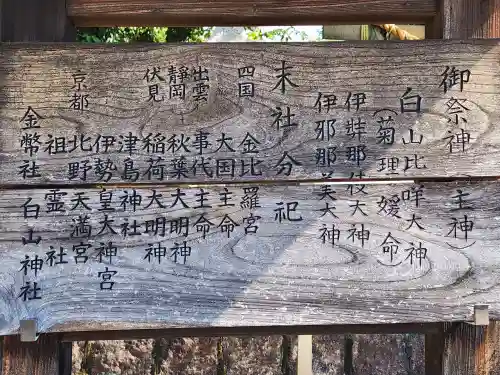 御祭神(主神)
白山比咩大神
(菊理媛命)
伊弉那伎大神
伊邪那美大神
末社分祀
四国 金比羅宮
大国主命
出雲 事代主命
静岡 秋葉大明神
伏見 稲荷大明神
津島神社
伊勢皇大神宮
京都 北野天満宮
祖霊社
金幣社 白山神社